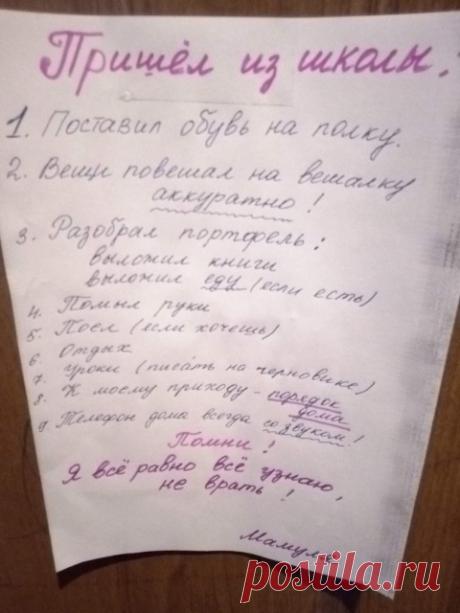 Пришёл из школы.
1. Поставил обувь на полку.
2. Вещи повешал на вешалку
аккуратно!
3. Разобрал портфель:
выложил книги
выложил еду (если есть)
4. Помыл руки
5. Поел (если хочешь)
6. Отдых
7. уроки (писать на черновике)
8. К моему приходу - порядок
дома
9. Телефон дома всегда со звуком!
Помни!
Я всё равно всё узнаю,
не врать!
Мамуля
postila.ru